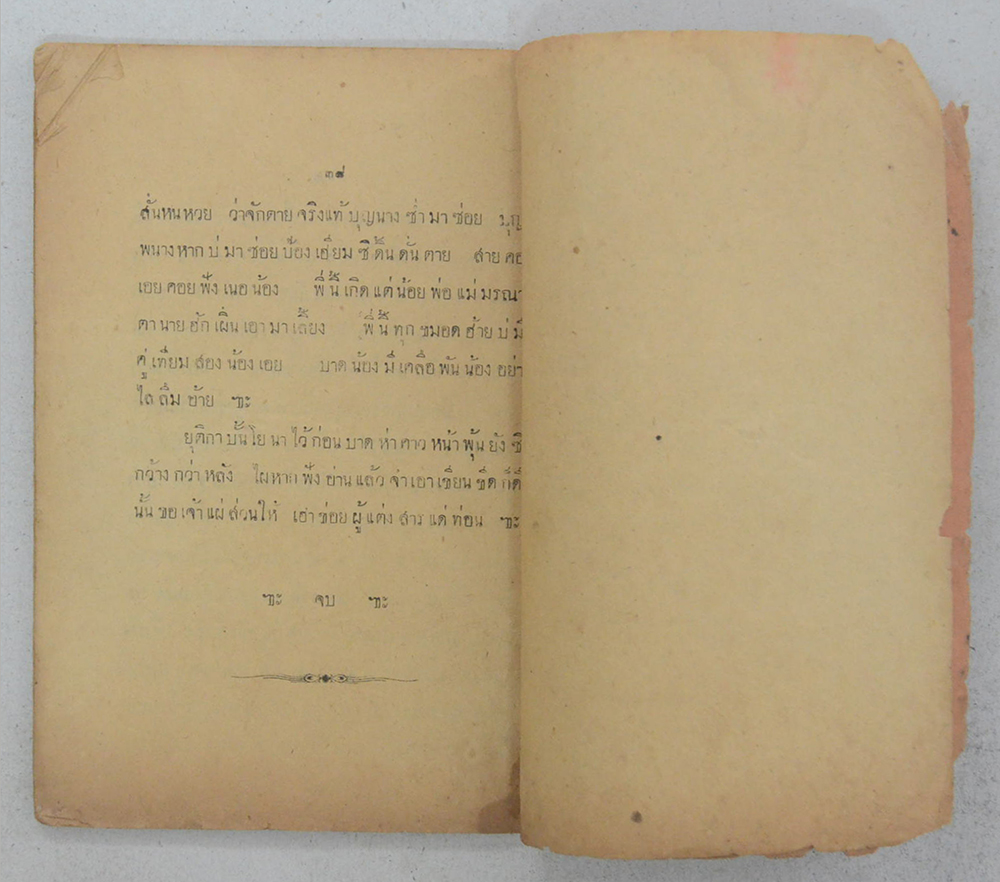 ๒๗
สั้นหนหวย ว่าจักตาย จริงแท้ บุญนาง ซ้ำ มา ซ่อย บุญ
พนาง หาก บ่ มา ซ่อย ป้อง เฮียม ซิ ดิ้น ดั้น ตาย สาย คอ
เอย คอย ฟัง เนอ น้อง พี่ นี้ เกิด แต่ น้อย พ่อ แม่ มรณา
ตา นาย ฮัก เผิ่น เอา มา เลี้ยง พี่ นี้ ทุก ขมอด ฮ้าย บ่ มี
คู่ เทียม สอง น้อง เอย บาด น้อง มี เคลือ พัน น้อง อย่า
ไล ลืม อ้าย ฯะ
ยุติกา บั้น โย นา ไว้ ก่อน บาด ห่า คาว หน้า พุ้น ยัง ซิ
กว้าง กว่า หลัง ไผ หาก ฟัง อ่าน แล้ว จำ เอา เขียน ขีด ก็ดี
นั้น ขอ เจ้า แผ่ ส่วน ให้ เฮา ซ่อย ผู้ แต่ง สาร แด่ ท่อน ฯะ
ฯะ จบ ฯะ